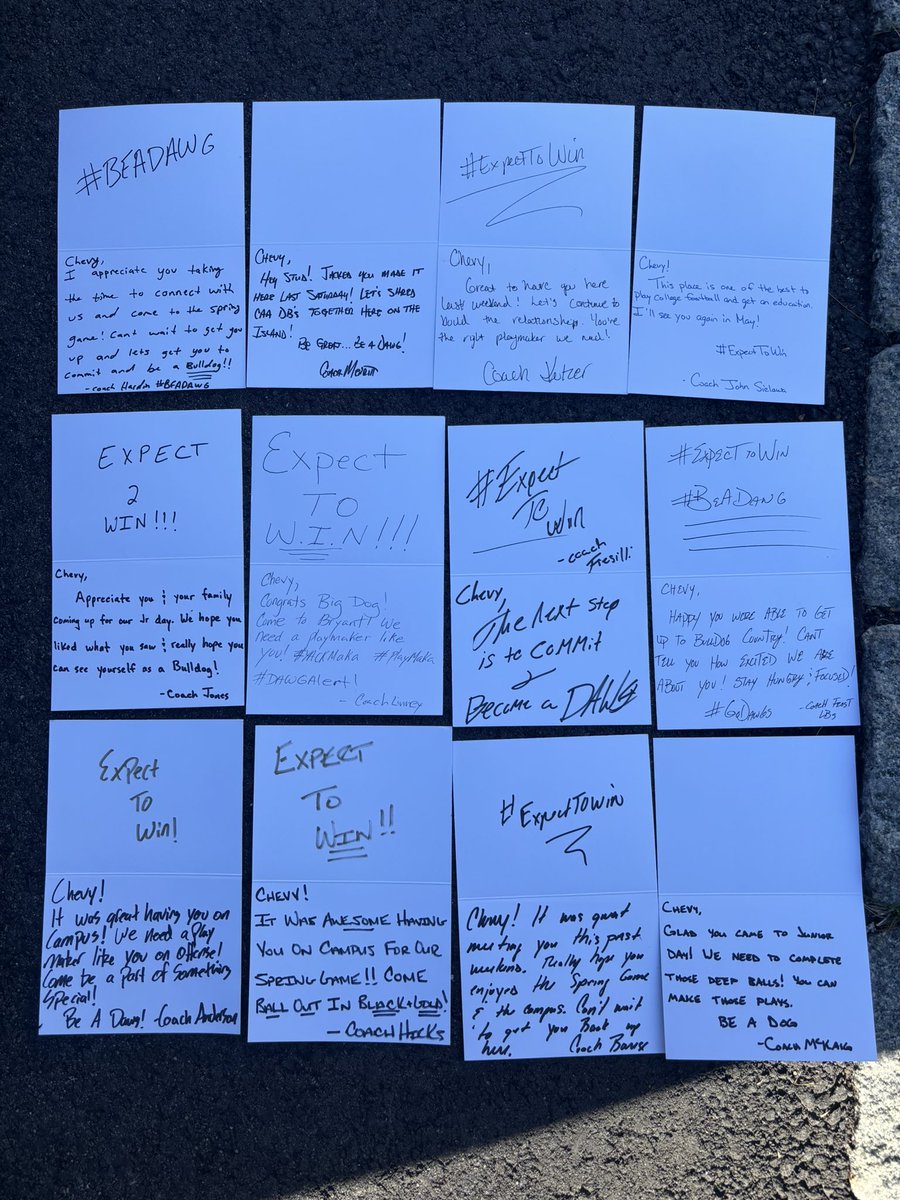 #BEADAWG
Chevy,
I appreciate you taking
the time to connect with
us and come to the spring
game! Cant wait to get you
up and lets get you to
commit and be a Bulldog!!
-coach Hardin #BEADAWG
Chevy,
Hey Stud! Jacked you made it
here last Saturday! Let's shred
CAA DB's together here on the
Island!
Be Great... Be A Dawg!
Coach
#ExpectToWin
Chevy,
Great to have you here
last weekend! Let's continue to
build the relationship. You're
the right playmaker we need!
Coach Kutzer
Chevy!
This place is one of the best to
play College Football and get an education.
I'll see you again in May!
#ExpectToWin
- Coach John
EXPECT
2
WIN!!!
Chevy,
Appreciate you & your family
coming up for our Jr day. We hope you
liked what you saw & really hope you
can see yourself as a Bulldog!
-Coach Jones
Expect
TO
W.I.N!!!
Chevy,
Congrats Big Dog!
Come to Bryant! We
need a playmaker like
you! #AckMaka #PlayMaka
#DAWGAlert!
- Coach
#Expect
To
Win
-Coach
Chevy,
The next step
is to COMMit
2
Become a DAWG
#EXPECTTOWIN
#BEADAWG
CHEVY,
HAPPY YOU WERE ABLE TO GET
UP TO BULLDOG COUNTRY! CAN'T
TELL YOU HOW EXCITED WE ARE
ABOUT YOU! STAY HUNGRY & FOCUSED!
#GoDAWGS
-COACH
LBs
Expect
To
Win!
Chevy!
It was great having you on
Campus! We need a Play
Maker like you on Offense!
Come be a Part of Something
Special!
Be A Dawg! -Coach Anderson
EXPECT
TO
WIN!!
CHEVY!
IT WAS AWESOME HAVING
YOU ON CAMPUS FOR OUR
SPRING GAME!! COME
BALL OUT IN BLACK & GOLD!
-COACH HICKS
#ExpectToWin
Chevy! It was great
meeting you this past
weekend. Really hope you
enjoyed the Spring Game
& the campus. Can't wait
to get you Back up
here. Coach
CHEVY,
GLAD YOU CAME TO JUNIOR
DAY! WE NEED TO COMPLETE
THOSE DEEP BALLS! YOU CAN
MAKE THOSE PLAYS.
BE A DOG
-COACH